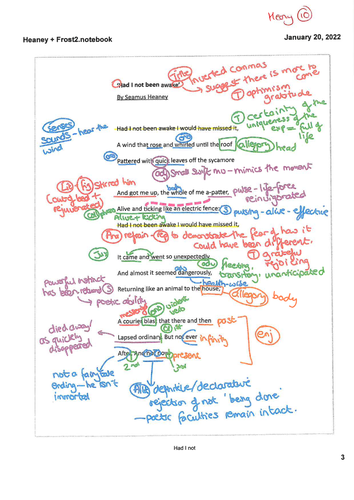 Heaney 10
Heaney + Frost2.notebook
January 20, 2022
Title inverted commas
suggest there is more to come
'Had I not been awake'
T optimism
gratitude
By Seamus Heaney
T certainty of the
uniqueness of the
exp = full of
life
senses
sounds - hear the
wind
Had I not been awake I would have missed it,
A wind that rose and whirled until the roof
allegory head
Pattered with quick leaves off the sycamore
adj small swift mu - mimics the moment
Lit Fig stirred him
And got me up, the whole of me a-patter,
pulse - life-force
reinvigorated
rejuvenated
Alive and ticking like an electric fence:
S pulsing - alive - effective
Alive + kicking
Had I not been awake I would have missed it,
refrain - rep to demonstrate the fear of has it
could have been different.
T grateful
rejoicing
It came and went so unexpectedly
adv fleeting,
transitory, unanticipated
And almost it seemed dangerously,
health-wise
powerful instinct
has been returned S
Returning like an animal to the house,
allegory body
poetic ability
A courier blast that there and then
past
died away
as quickly
disappeared
Lapsed ordinary. But not ever
infinity
enj
After. And not now.
present
not a fairytale
ending - he isn't
immortal
definitive/declarative
rejection of not 'being done'
- poetic faculties remain intact.
Had I not
3